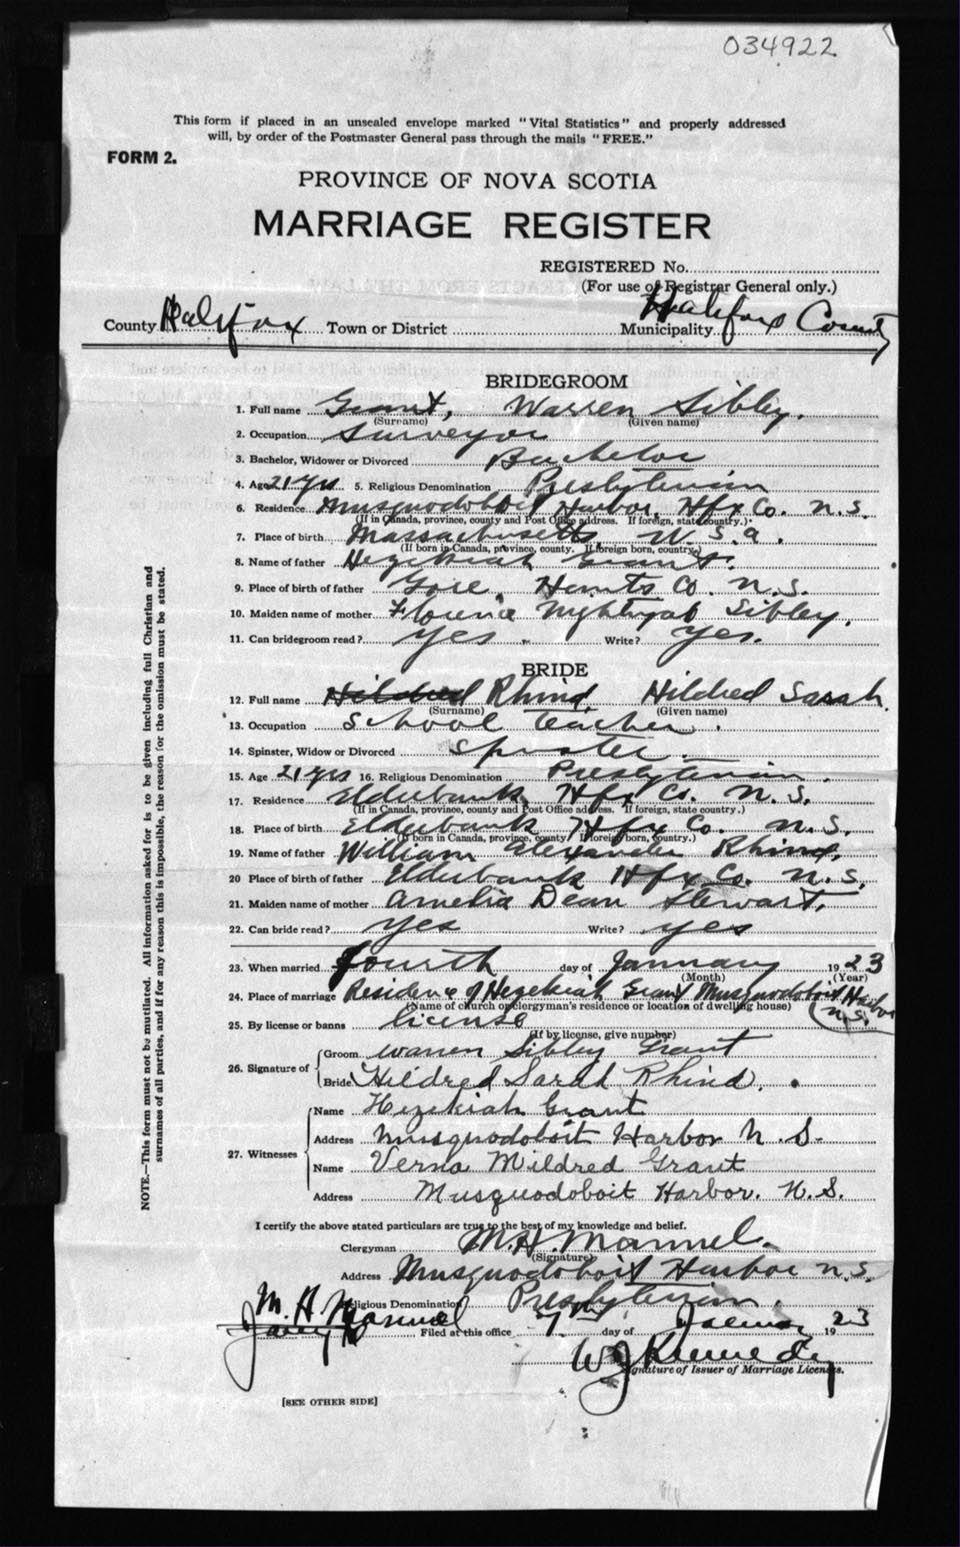 034922
This form if placed in an unsealed envelope marked "Vital Statistics" and properly addressed
will, by order of the Postmaster General pass through the mails "FREE."
FORM 2.
PROVINCE OF NOVA SCOTIA
MARRIAGE REGISTER
REGISTERED No.
(For use of Registrar General only.)
County Halifax Town or District Municipality Halifax County
BRIDEGROOM
1. Full name Grant, Warren Sibley.
(Surname) (Given name)
2. Occupation Surveyor
3. Bachelor, Widower or Divorced Bachelor
4. Age 21 yrs 5. Religious Denomination Presbyterian
6. Residence Musquodoboit Harbor, Hfx Co. N.S.
(If in Canada, province, county and Post Office address. If foreign, state country.)
7. Place of birth Massachusetts U.S.A.
(If born in Canada, province, county. If foreign born, country.)
8. Name of father Hezekiah Grant.
9. Place of birth of father Gore, Hants Co. N.S.
10. Maiden name of mother Sibley.
11. Can bridegroom read? yes. Write? yes.
BRIDE
12. Full name Hildred Rhind, Hildred Sarah
(Surname) (Given name)
13. Occupation School teacher.
14. Spinster, Widow or Divorced Spinster.
15. Age 21 yrs 16. Religious Denomination Presbyterian.
17. Residence Elderbank, Hfx Co. N.S.
(If in Canada, province, county and Post Office address. If foreign, state country.)
18. Place of birth Elderbank Hfx Co. N.S.
(If born in Canada, province, county. If foreign born, country.)
19. Name of father William Alexander Rhind.
20 Place of birth of father Elderbank Hfx Co. N.S.
21. Maiden name of mother Amelia Dean Stewart.
22. Can bride read? yes Write? yes
23. When married fourth day of January 1923
(Month) (Year)
24. Place of marriage Residence of Hezekiah Grant Musquodoboit Harbor
N.S.
(Name of church or clergyman's residence or location of dwelling house)
25. By license or banns license
(If by license, give number)
26. Signature of Groom Warren Sibley Grant
Bride Hildred Sarah Rhind.
27. Witnesses Name Hezekiah Grant
Address Musquodoboit Harbor N.S.
Name Verna Mildred Grant
Address Musquodoboit Harbor. N.S.
I certify the above stated particulars are true to the best of my knowledge and belief.
Clergyman M. H. Manuel.
(Signature)
Address Musquodoboit Harbor N.S.
Religious Denomination Presbyterian.
M. H. Manuel
Filed at this office 7th day of 1923
W J Kennedy
Signature of Issuer of Marriage Licenses.
[SEE OTHER SIDE]
NOTE.—This form must not be mutilated. All information asked for is to be given including full Christian and
surnames of all parties, and if for any reason this is impossible, the reason for the omission must be stated.